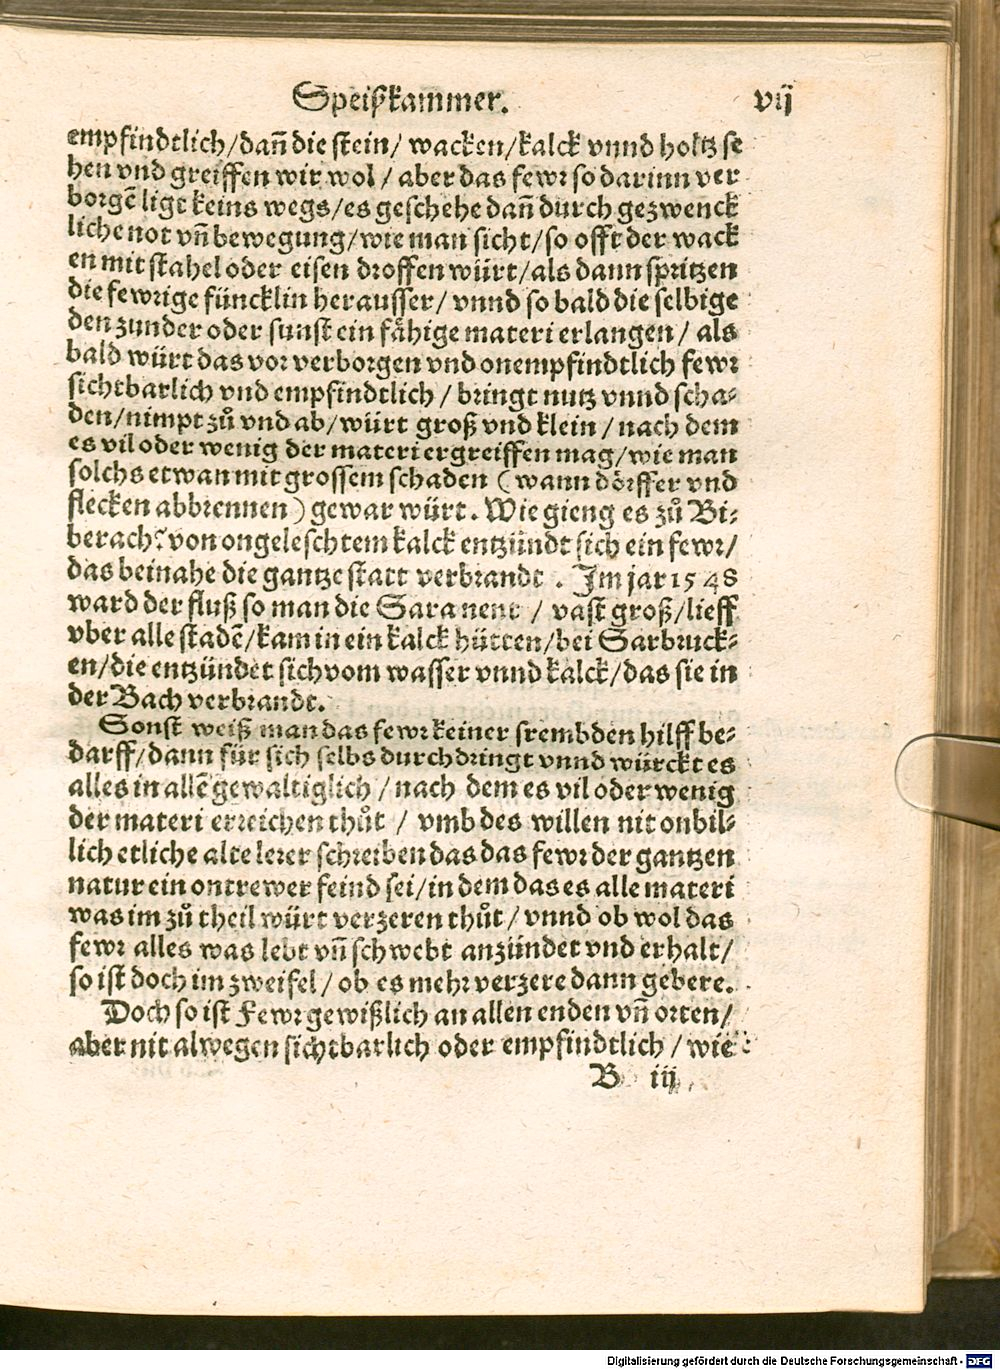 Speißkammer. vij
empfindtlich/dañ die stein/ wacken/kalck vnnd holtz se
hen vnd greiffen wir wol / aber das fewr so darinn ver
borgẽ ligt keins wegs/es geschehe dañ durch gezwenck
liche not vñ bewegung/wie man sicht/so offt der wack
en mit stahel oder eisen droffen würt/als dann spritzen
die fewrige füncklin herausser/ vnnd so bald die selbige
den zunder oder sunst ein fähige materi erlangen/ als
bald würt das vor verborgen vnd onempfindtlich fewr
sichtbarlich vnd empfindtlich / bringt nutz vnnd scha⸗
den/nimpt zů vnd ab/würt groß vnd klein / nach dem
es vil oder wenig der materi ergreiffen mag/wie man
solchs etwan mit grossem schaden (wann dörffer vnd
flecken abbrennen) gewar würt. Wie gieng es zů Bi⸗
berach? von ongeleschtem kalck entzündt sich ein fewr/
das beinahe die gantze statt verbrandt . Im jar 1548
ward der fluß so man die Sara nent / vast groß/lieff
vber alle stadẽ/kam in ein kalck hütten/bei Sarbruck⸗
en/die entzündet sich vom wasser vnnd kalck/das sie in
der Bach verbrandt.
Sonst weiß man das fewr keiner frembden hilff be⸗
darff/dann für sich selbs durchdringt vnnd würckt es
alles in allẽ gewaltiglich / nach dem es vil oder wenig
der materi erreichen thůt / vmb des willen nit onbil⸗
lich etliche alte lerer schreiben das das fewr der gantzen
natur ein ontrewer feind sei/in dem das es alle materi
was im zů theil würt verzeren thůt/ vnnd ob wol das
fewr alles was lebt vñ schwebt anzündet vnd erhalt/
so ist doch im zweifel/ ob es mehr verzere dann gebere.
Doch so ist Fewr gewißlich an allen enden vñ orten/
aber nit alwegen sichtbarlich oder empfindtlich / wie
B iij
Digitalisierung gefördert durch die Deutsche Forschungsgemeinschaft - DFG